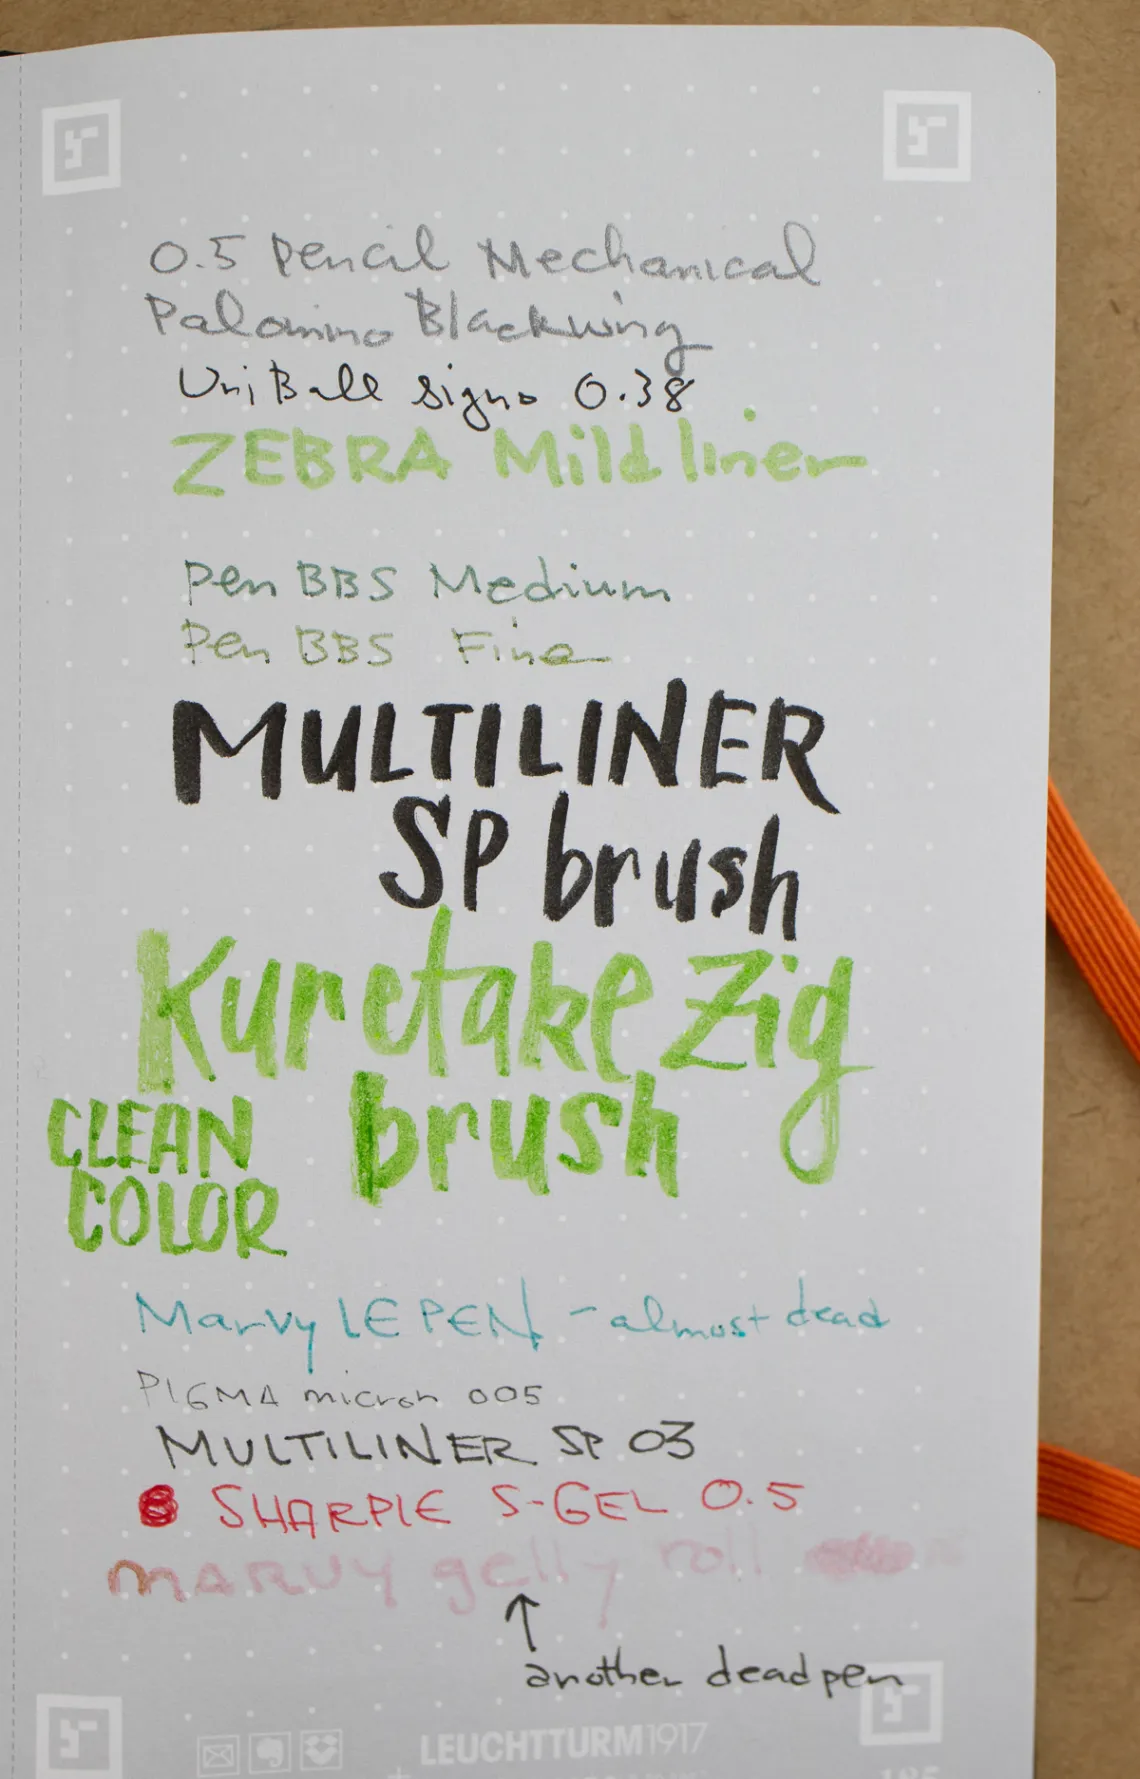 0.5 Pencil Mechanical
Palomino Blackwing
UniBall Signo 0.38
ZEBRA Mildliner
Pen BBS Medium
Pen BBS Fine
MULTILINER
SP brush
Kuretake Zig
CLEAN brush
COLOR
Marvy LE PEN - almost dead
PIGMA micron 005
MULTILINER SP 03
SHARPIE S-GEL 0.5
MARVY gelly roll
another dead pen
LEUCHTTURM1917
185